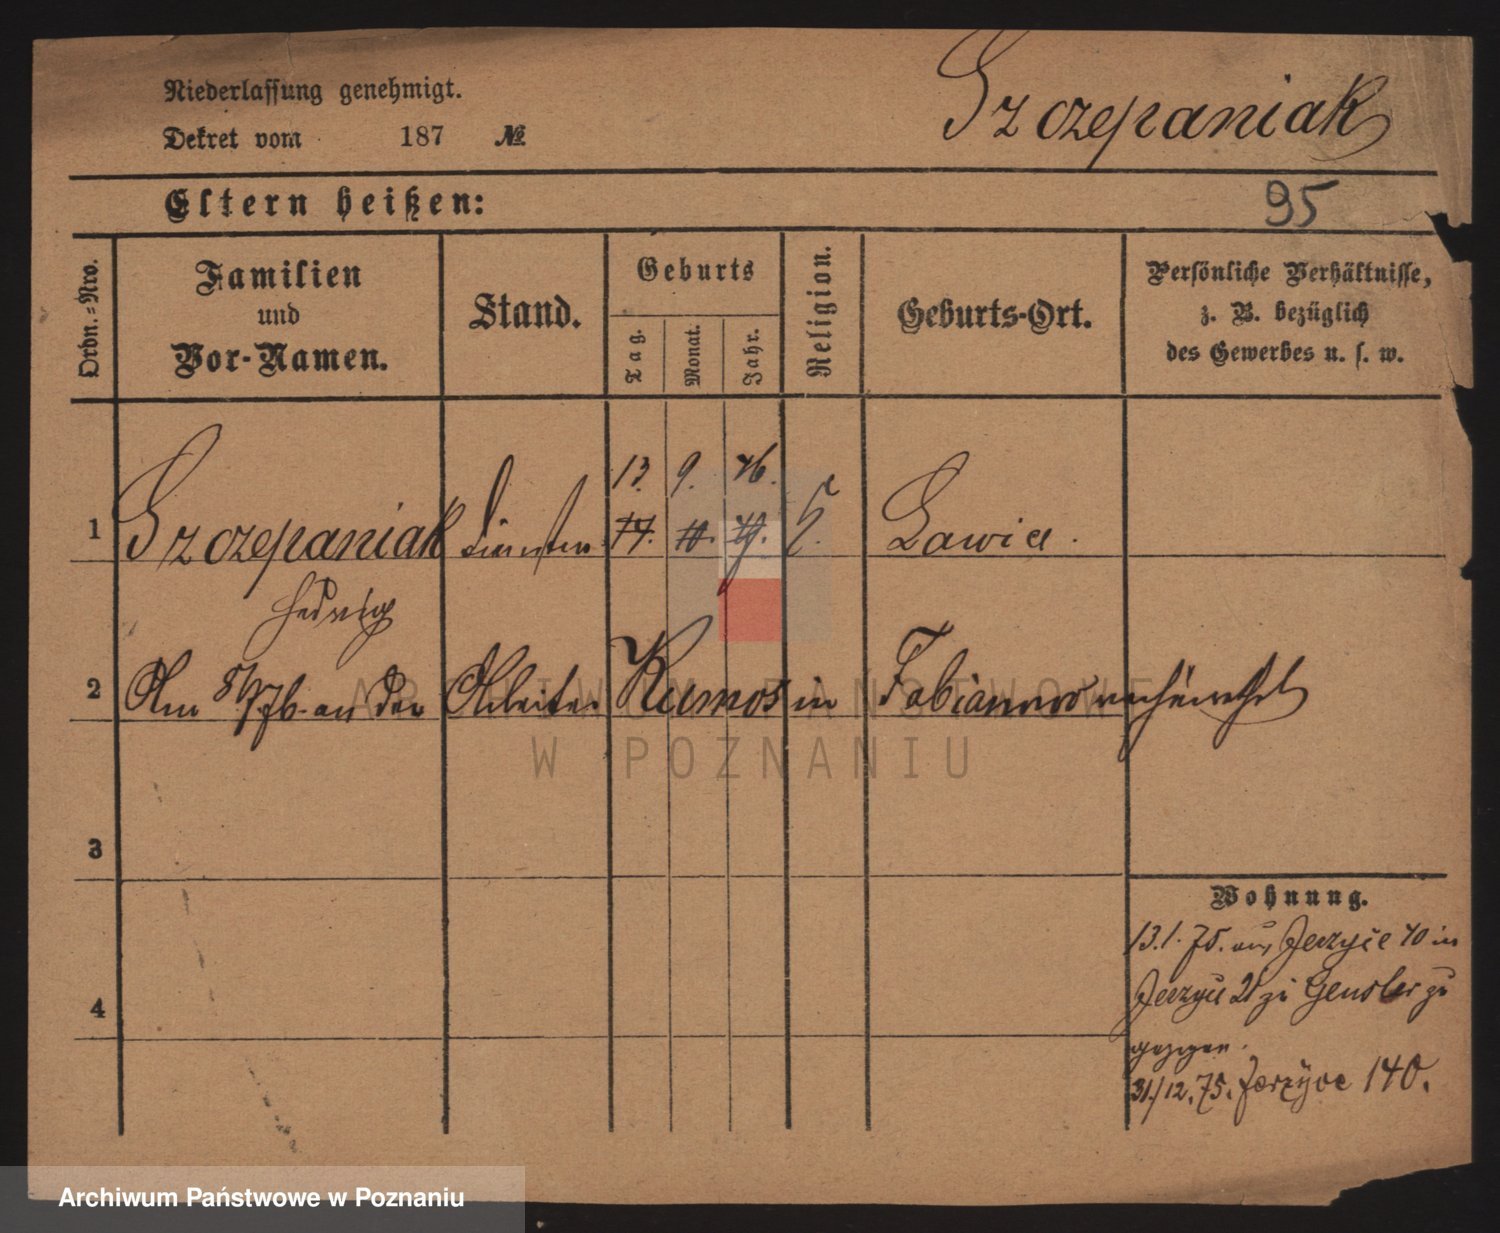 Niederlassung genehmigt.
Dekret vom 187 №
Szczepaniak
Eltern heißen:
95
Ordn.-Nro.
Familien
und
Vor-Namen.
Stand.
Geburts
Tag.
Monat.
Jahr.
Religion.
Geburts-Ort.
Persönliche Verhältnisse,
z. B. bezüglich
des Gewerbes u. s. w.
13. 9. 46.
1 Szczepaniak
Lawica.
Hedwig
2 Am an den Arbeiter Kumos in Fabianowo verheirathet
3
Wohnung.
13.1.75. aus Jerzyce 40 in
Jerzyce 21 zu Gensler zu
gezogen.
4
31/12.75. Jerzyce 140.
ARCHIWUM PAŃSTWOWE
W POZNANIU
Archiwum Państwowe w Poznaniu